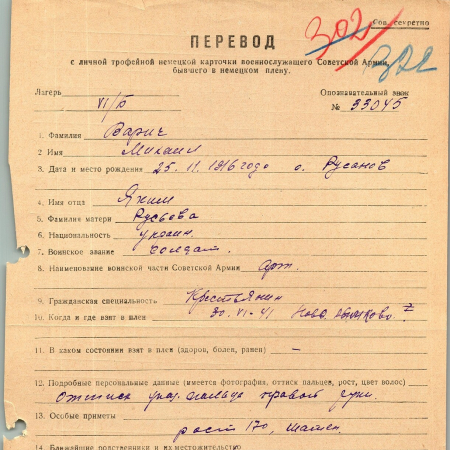 Сов. секретно
302
ПЕРЕВОД
с личной трофейной немецкой карточки военнослужащего Советской Армии,
бывшего в немецком плену.
Лагерь VI/Б
Опознавательный знак
№ 33045
1. Фамилия Варич
2 Имя Михаил
3. Дата и место рождения 25. 11. 1916 года о. Русанов
4. Имя отца Яким
5. Фамилия матери
6. Национальность украин.
7. Воинское звание солдат.
8. Наименование воинской части Советской Армии Арт.
9. Гражданская специальность Крестьянин
10. Когда и где взят в плен 30. VI - 41 Ново.
11. В каком состоянии взят в плен (здоров, болен, ранен) —
12. Подробные персональные данные (имеется фотография, оттиск пальцев, рост, цвет волос)
Оттиск указ. пальца правой руки.
13. Особые приметы
рост 170, шатен.
14 Ближайшие родственники и их местожительство